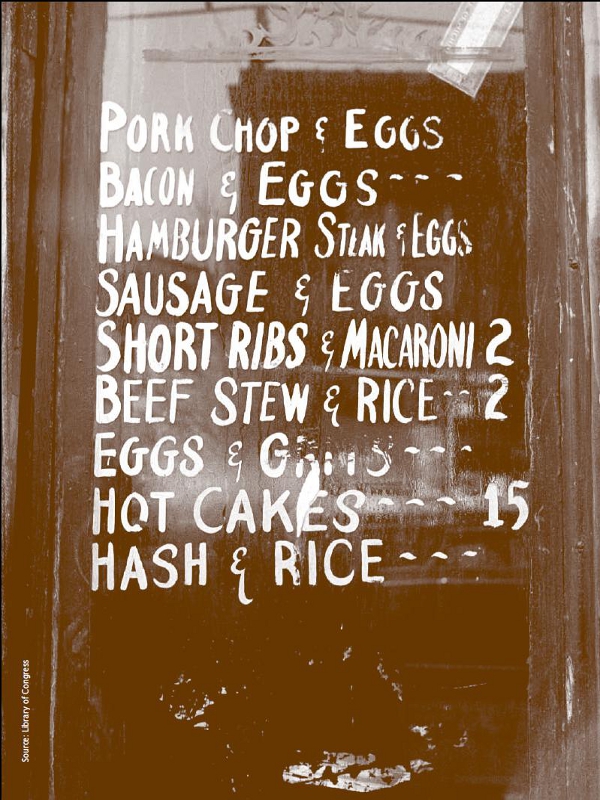 PORK CHOP & EGGS
BACON & EGGS ~ ~ ~
HAMBURGER STEAK & EGGS
SAUSAGE & EGGS
SHORT RIBS & MACARONI 2
BEEF STEW & RICE ~ ~ 2
EGGS & GRITS ~ ~ ~
HOT CAKES ~ ~ ~ ~ 15
HASH & RICE ~ ~ ~
Source: Library of Congress